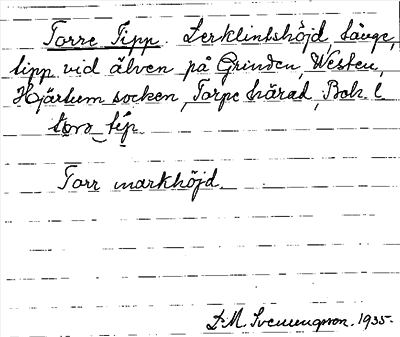 Torre Tipp. Lerklintshöjd, länge,
tipp vid älven på Grinden, Westen,
Hjärtum socken, Torpe härad, Boh. l
torə_tép
Torr markhöjd.
D. M. Svenungsson. 1935.